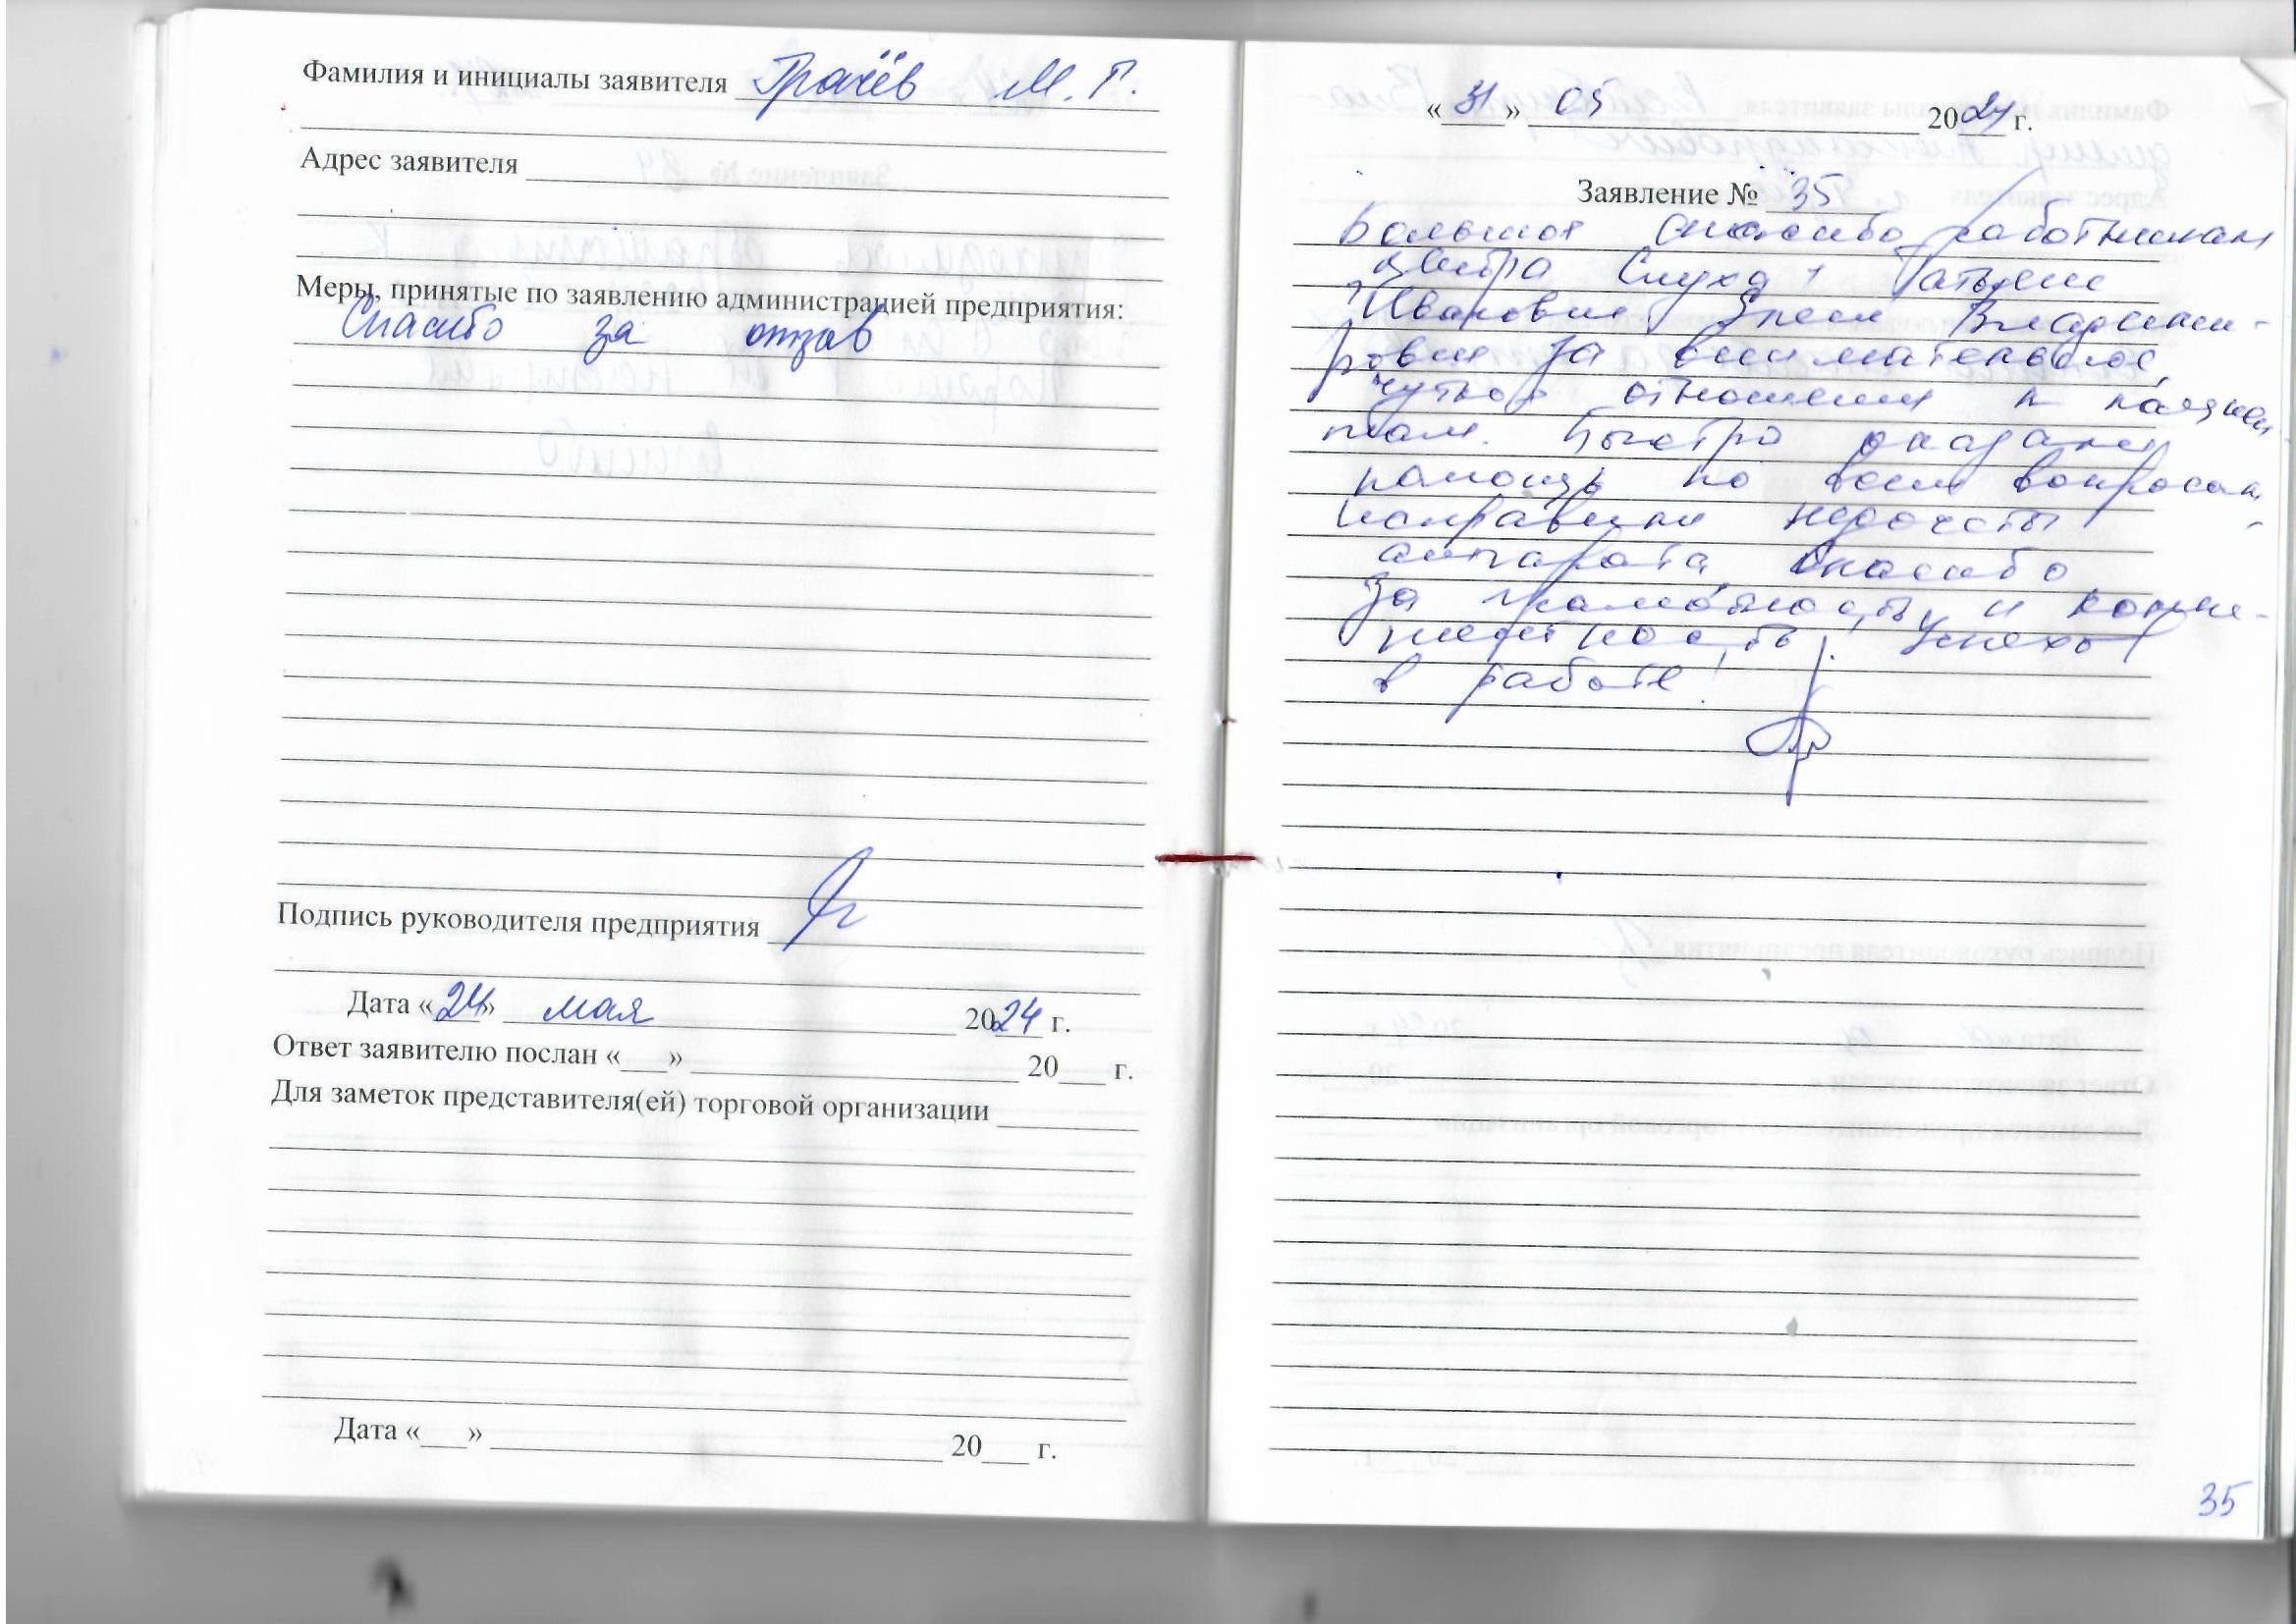 Фамилия и инициалы заявителя Грачёв М. Г.
Адрес заявителя
Меры, принятые по заявлению администрацией предприятия:
Спасибо за отзыв
Подпись руководителя предприятия
Дата «24» мая 2024 г.
Ответ заявителю послан «___» 20___ г.
Для заметок представителя(ей) торговой организации
Дата «___» 20___ г.
«31» 05 2024 г.
Заявление № 35
Большое спасибо работникам
центра Слуха, Татьяне
Ивановне, Влади-
ровне за внимательное,
чуткое отношение к пациен-
там. Быстро оказали
помощь по всем вопросам,
исправили недочеты
аппарата. Спасибо
за грамотность и компе-
тентность! Успехов
в работе!
35